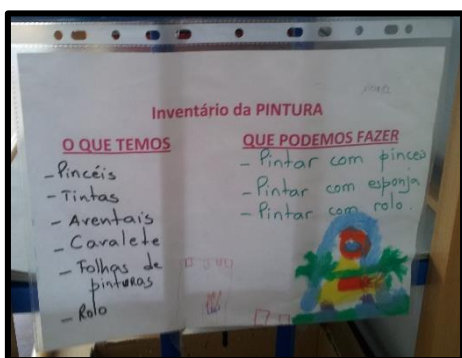 Inventário da PINTURA
O QUE TEMOS
- Pincéis
- Tintas
- Aventais
- Cavalete
- Folhas de
pinturas
- Rolo
QUE PODEMOS FAZER
- Pintar com pinceis
- Pintar com esponja
- Pintar com rolo.